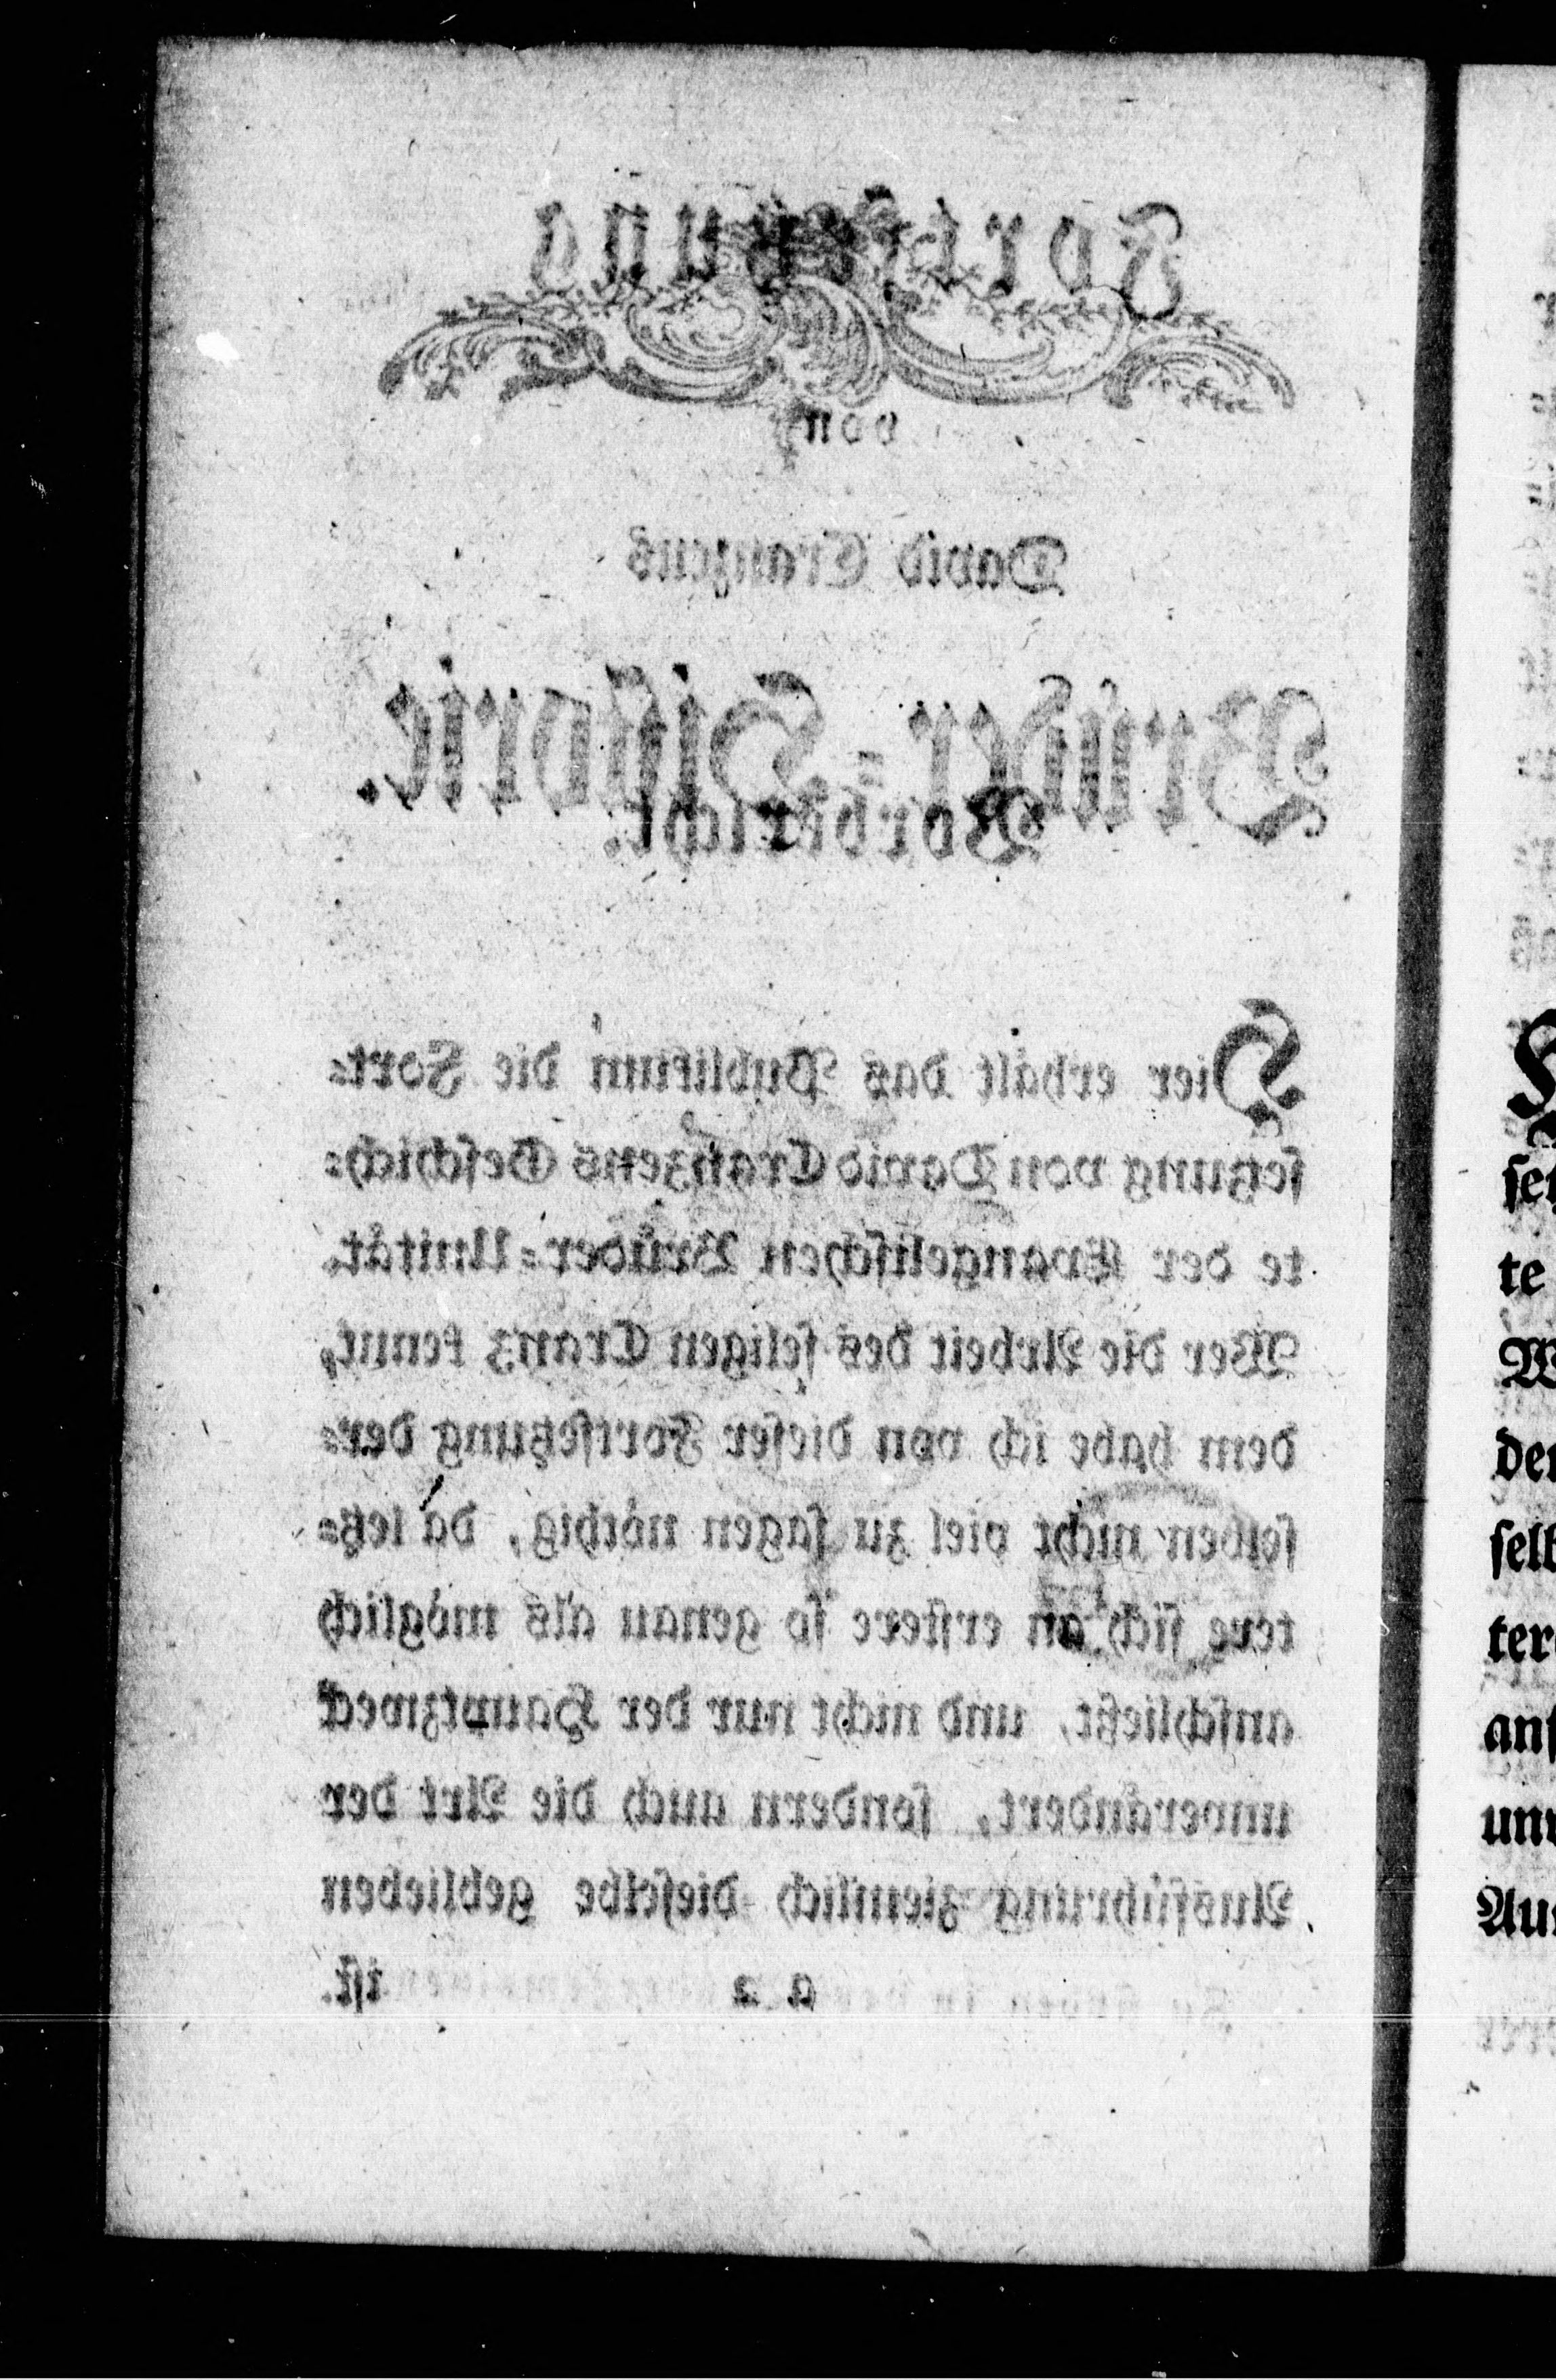 Fortsetzung
von
David Cranzens
Brüder=Historie.
Vorbericht.
Hier erhält das Publikum die Fort=
ſetzung von David Cranzens Geſchich=
te der Evangeliſchen Brüder=Unität.
Wer die Arbeit des ſeligen Cranz kennt,
dem habe ich von dieſer Fortſetzung der=
ſelben nicht viel zu ſagen nöthig, da letz=
tere ſich an erſtere ſo genau als möglich
anſchließt, und nicht nur der Hauptzweck
unverändert, ſondern auch die Art der
Ausführung ziemlich dieſelbe geblieben
a 2 iſt.
H
ſet
te
W
der
ſelb
ter
anſ
unv
Aus